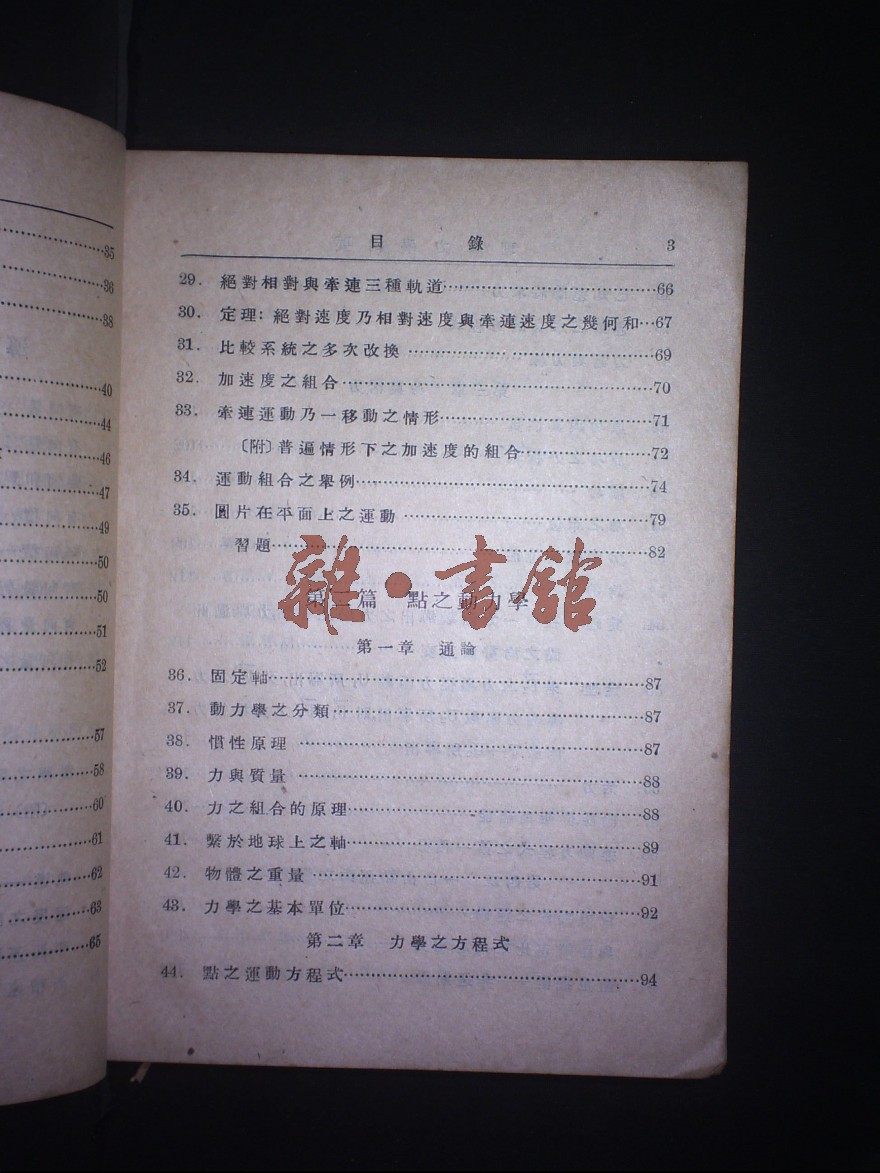 35
36
38
40
44
46
47
49
50
50
51
52
57
58
60
61
62
63
65
目 錄 3
29. 絕對相對與牽連三種軌道……66
30. 定理：絕對速度乃相對速度與牽連速度之幾何和…67
31. 比較系統之多次改換……69
32. 加速度之組合……70
33. 牽連運動乃一移動之情形……71
〔附〕普遍情形下之加速度的組合……72
34. 運動組合之舉例……74
35. 圓片在平面上之運動……79
習題……82
雜·書館
第三篇 點之動力學
第一章 通論
36. 固定軸……87
37. 動力學之分類……87
38. 慣性原理……87
39. 力與質量……88
40. 力之組合的原理……88
41. 繫於地球上之軸……89
42. 物體之重量……91
43. 力學之基本單位……92
第二章 力學之方程式
44. 點之運動方程式……94